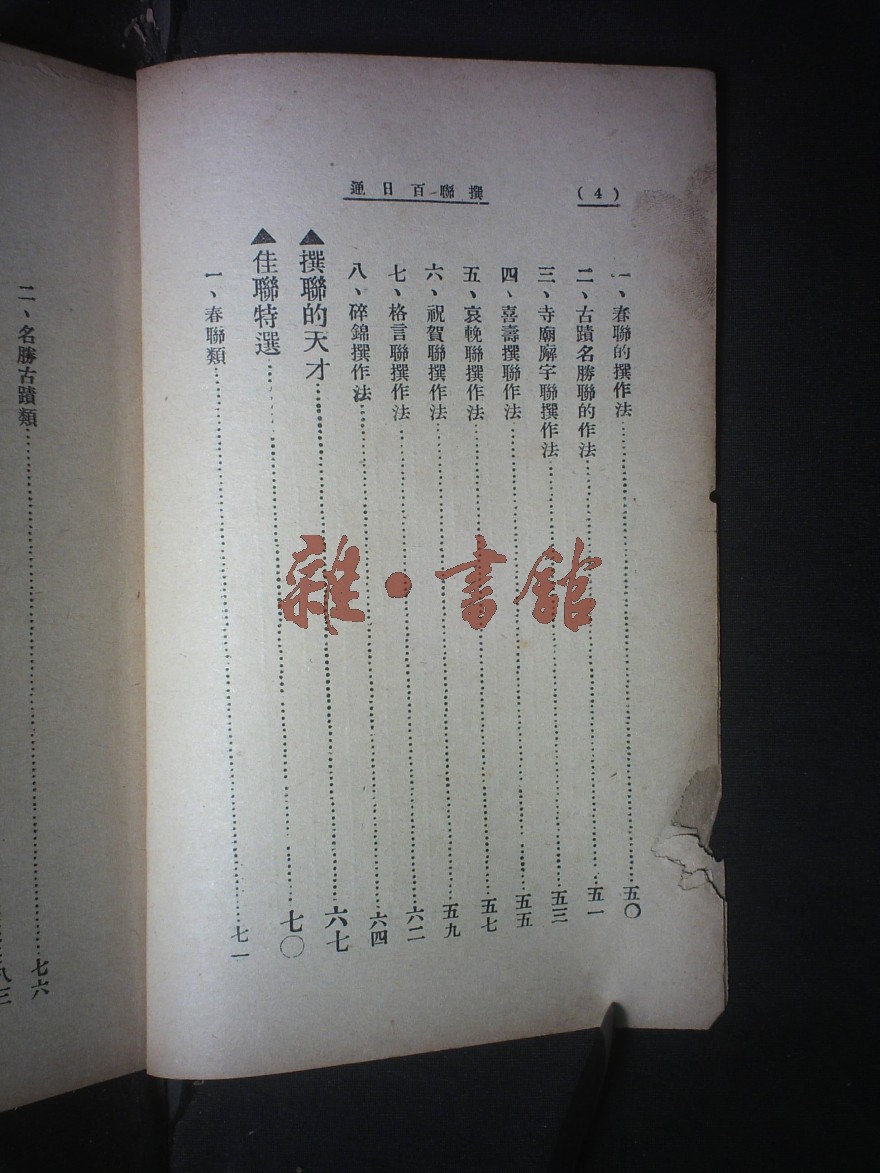 (4)
撰聯百日通
一、春聯的撰作法……五〇
二、古蹟名勝聯的作法……五一
三、寺廟廨宇聯撰作法……五三
四、喜壽撰聯作法……五五
五、哀輓聯撰作法……五七
六、祝賀聯撰作法……五九
七、格言聯撰作法……六二
八、碎錦撰作法……六四
▲撰聯的天才……六七
▲佳聯特選……七〇
一、春聯類……七一
二、名勝古蹟類……七六
八三
雜·書館